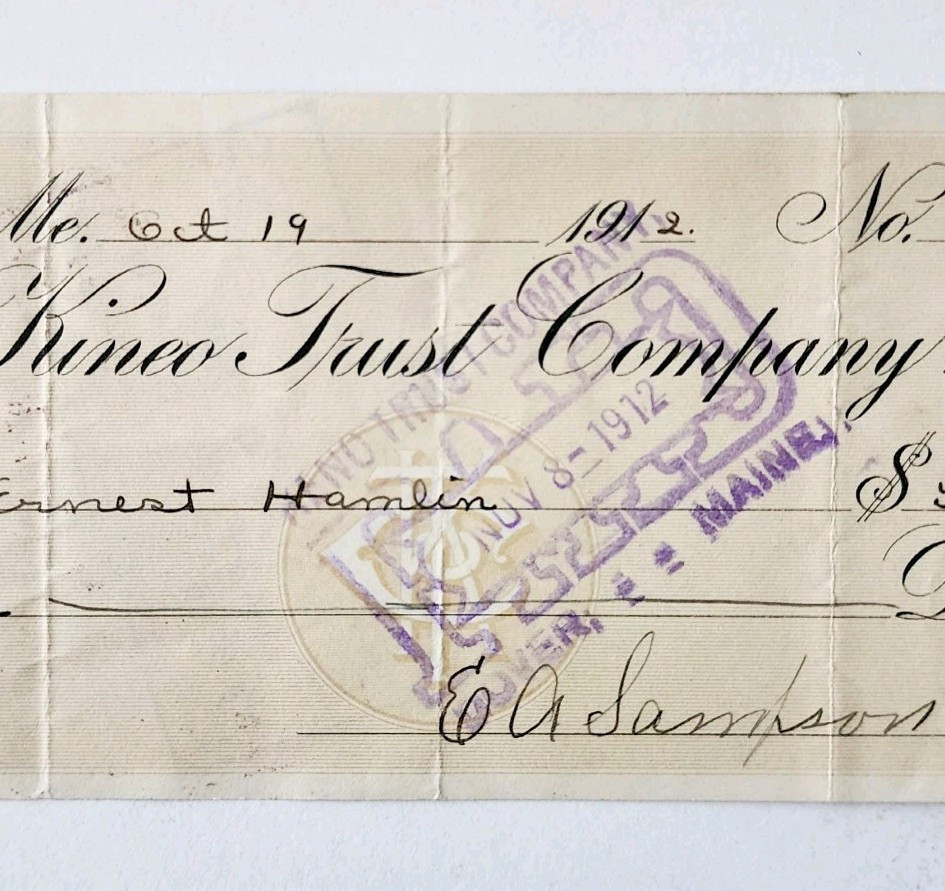 Me. Oct 19 1912. No.
Kineo Trust Company
Ernest Hamlin $
E A Sampson
TRUST COMPANY,
NOV 8 - 1912
MAINE,